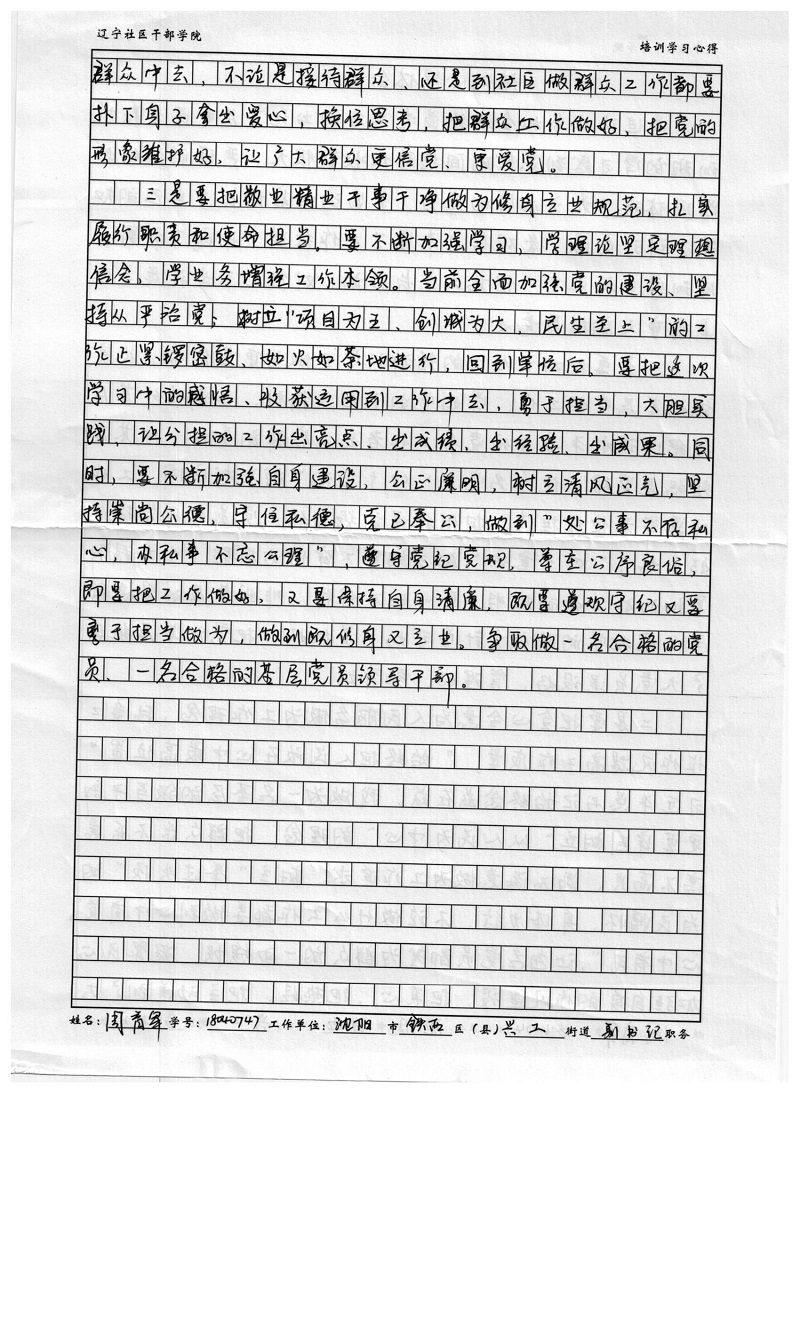 辽宁社区干部学院
培训学习心得
群众中去，不论是接待群众、还是到社区做群众工作都要
扑下身子拿出爱心，换位思考，把群众工作做好，把党的
形象维护好，让广大群众更信党、更爱党。
三是要把敬业精业干事干净做为修身立业规范，扎实
履行职责和使命担当。要不断加强学习，学理论坚定理想
信念，学业务增强工作本领。当前全面加强党的建设、坚
持从严治党；树立“项目为王、创城为大，民生至上”的工
作正紧锣密鼓、如火如荼地进行，回到单位后，要把这次
学习中的感悟、收获运用到工作中去，勇于担当，大胆实
践，让分担的工作出亮点、出成绩、出经验、出成果。同
时，要不断加强自身建设，公正廉明，树立清风正气，坚
持崇尚公德，守住私德，克己奉公，做到“处公事不存私
心，办私事不忘公理”，遵守党纪党规，尊重公序良俗，
即要把工作做好，又要保持自身清廉，既要遵规守纪又要
勇于担当做为，做到既修身又立业。争取做一名合格的党
员、一名合格的基层党员领导干部。
姓名：周青军学号：18040747工作单位：沈阳市铁西区（县）兴工街道副书记职务